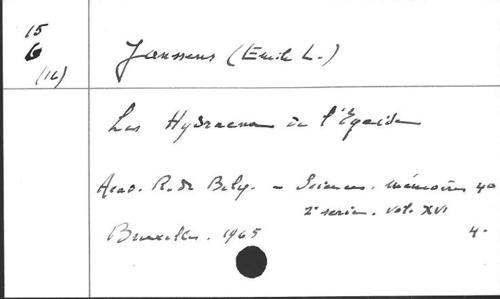 15
6
(16)
Janssens (Emile L.)
Les Hydraena de l'Egéide
Acad. R. de Belg. - Sciences. Mémoires 4o
2e serie. vol. XVI
Bruxelles. 1965 4.